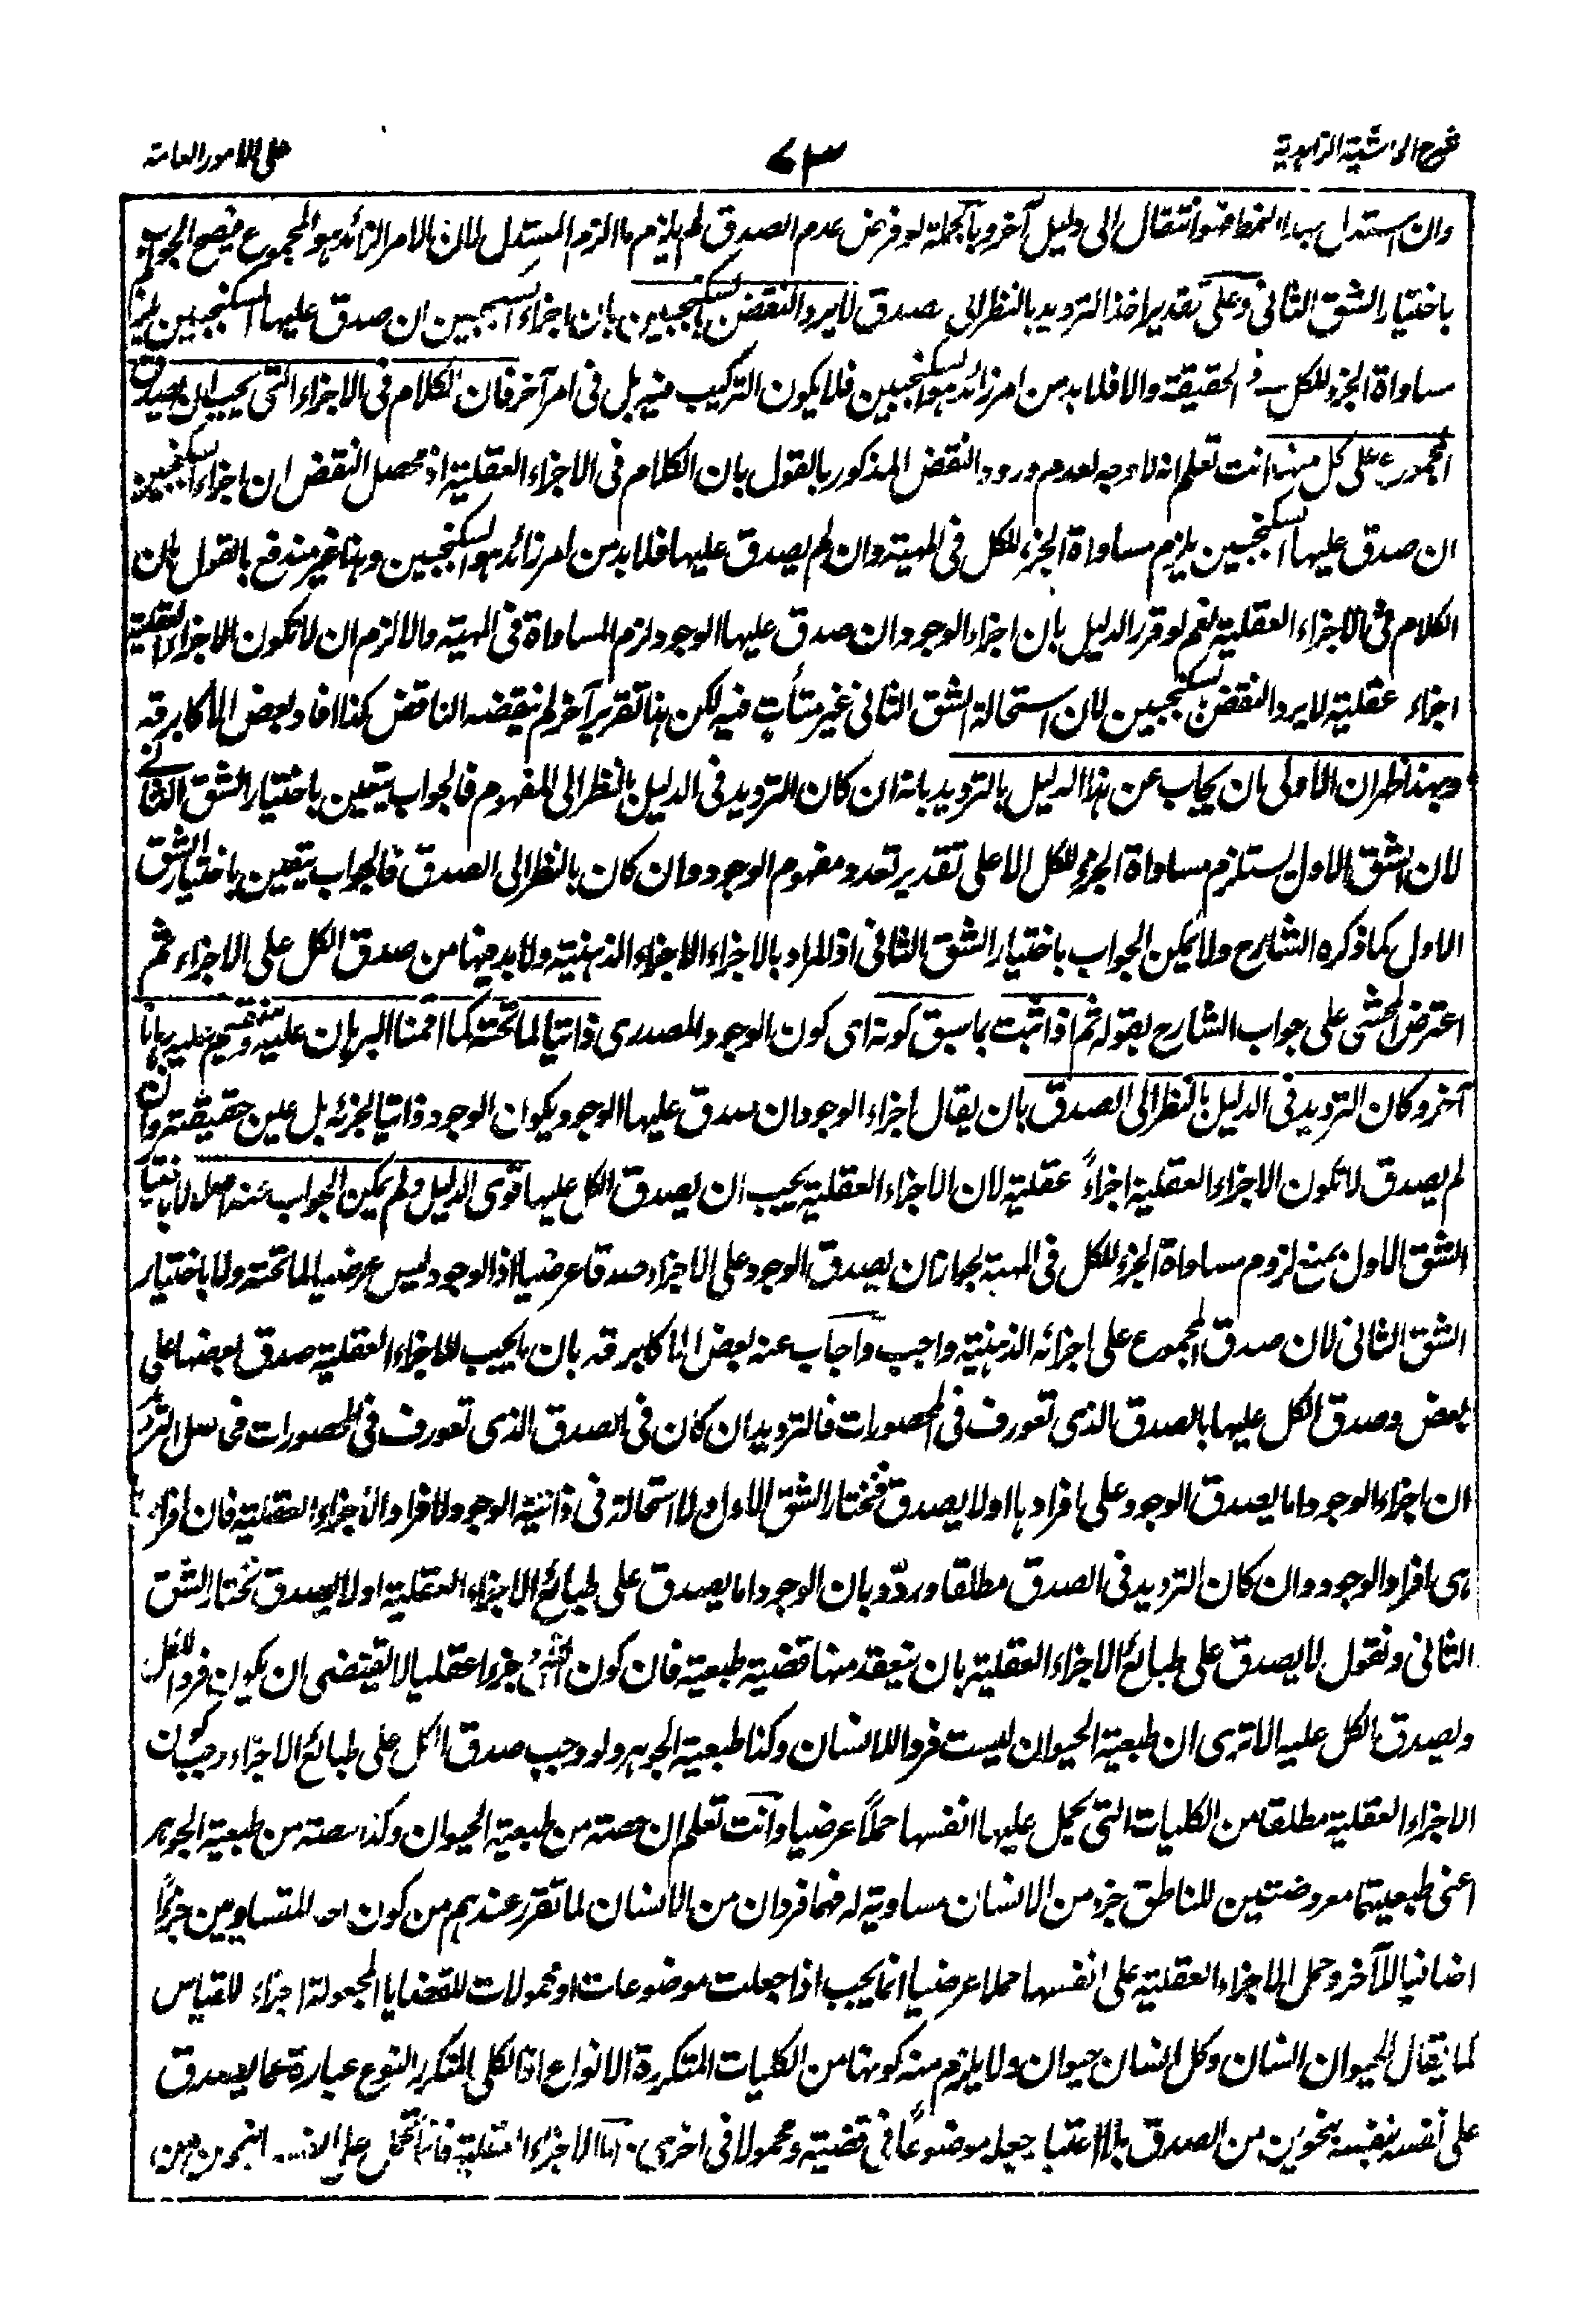 شرح الحاشية الزاهدية
٧٣
على الامور العامة
وان استدل بهذا النمط فهو انتقال الى دليل آخر وبالجملة لو فرض عدم الصدق لم يلزم ما الزم المستدل لان الامر الزائد هو المجموع فيصح الجواب
باختيار الشق الثانى وعلى تقدير اخذ الترديد بالنظر الى صدق لا يرد النقض بالسكنجبين بان اجزاء السكنجبين ان صدق عليها السكنجبين يلزم
مساواة الجزء للكل فى الحقيقة والا فلا بد من امر زائد هو السكنجبين فلا يكون التركيب فيه بل فى امر آخر فان الكلام فى الاجزاء التى يجب ان يصدق
المجموع على كل منها انت تعلم انه لا وجه لعدم ورود النقض المذكور بالقول بان الكلام فى الاجزاء العقلية اذ محصل النقض ان اجزاء السكنجبين
ان صدق عليها السكنجبين يلزم مساواة الجزء للكل فى المهية وان لم يصدق عليها فلا بد من امر زائد هو السكنجبين وهذا غير مندفع بالقول بان
الكلام فى الاجزاء العقلية نعم لو قرر الدليل بان اجزاء الوجود ان صدق عليها الوجود لزم المساواة فى المهية والا لزم ان لا تكون الاجزاء العقلية
اجزاء عقلية لا يرد النقض بالسكنجبين لان استحالة الشق الثانى غير متأت فيه لكن هذا تقرير آخر لم ينقضه الناقض كذا افاد بعض الاكابر قه
وبهذا ظهر ان الاولى بان يجاب عن هذا الدليل بالترديد بانه ان كان الترديد فى الدليل بالنظر الى المفهوم فالجواب يتعين باختيار الشق الثانى
لان الشق الاول يستلزم مساواة الجزء للكل الا على تقدير تعدد مفهوم الوجود وان كان بالنظر الى الصدق فالجواب يتعين باختيار الشق
الاول كما ذكره الشارح ولا يمكن الجواب باختيار الشق الثانى اذ المراد بالاجزاء الاجزاء الذهنية ولا بد فيها من صدق الكل على الاجزاء ثم
اعترض المحشى على جواب الشارح بقوله ثم اذا ثبت بما سبق كونه اى كون الوجود المصدرى ذاتيا لما تحته كما اقمنا البرهان عليه وسنقيم عليه برهانا
آخر وكان الترديد فى الدليل بالنظر الى الصدق بان يقال اجزاء الوجود ان صدق عليها الوجود يكون الوجود ذاتيا لجزئه بل عين حقيقته وان
لم يصدق لا تكون الاجزاء العقلية اجزاءً عقلية لان الاجزاء العقلية يجب ان يصدق الكل عليها قوى الدليل ولم يمكن الجواب عنه اصلا لا باختيار
الشق الاول بمنع لزوم مساواة الجزء للكل فى المهية بجواز ان يصدق الوجود على الاجزاء صدقا عرضيا اذ الوجود ليس عرضيا لما تحته ولا باختيار
الشق الثانى لان صدق المجموع على اجزائه الذهنية واجب واجاب عنه بعض الاكابر قه بان ما يجب للاجزاء العقلية صدق بعضها على
بعض وصدق الكل عليها بالصدق الذى تعورف فى المحصورات فالترديد ان كان فى الصدق الذى تعورف فى المحصورات
ان اجزاء الوجود اما يصدق الوجود على افرادها او لا يصدق فنختار الشق الاول ولا استحالة فى ذاتية الوجود لافراد الاجزاء العقلية فان افرادها
هى افراد الوجود وان كان الترديد فى الصدق مطلقا وردّد بان الوجود اما يصدق على طبائع الاجزاء العقلية او لا يصدق نختار الشق
الثانى ونقول لا يصدق على طبائع الاجزاء العقلية بان ينعقد منها قضية طبعية فان كون الشئ جزءا عقليا لا يقتضى ان يكون فردا للكل
ويصدق الكل عليه الا ترى ان طبعية الحيوان ليست فردا للانسان وكذا طبعية الجوهر ولو وجب صدق الكل على طبائع الاجزاء وجب كون
الاجزاء العقلية مطلقا من الكليات التى يحمل عليها انفسها حملاً عرضيا وانت تعلم ان حصته من طبعية الحيوان وكذا حصته من طبعية الجوهر
اعنى طبعيتهما معروضتين للناطق جزء من الانسان مساوية له فهما فردان من الانسان لما تقرر عندهم من كون احد المتساويين جزئيا
اضافيا للآخر وحمل الاجزاء العقلية على انفسها حملا عرضيا انما يجب اذا جعلت موضوعات او محمولات للقضايا المجعولة اجزاء للقياس
كما يقال الحيوان انسان وكل انسان حيوان ولا يلزم منه كونها من الكليات المتكررة الانواع اذ الكلى المتكرر النوع عبارة عما يصدق
على نفسه بنفسه بنحوين من الصدق بلا اعتبار جعله موضوعاً فى قضية ومحمولا فى اخرى اما الاجزاء العقلية فانما تحمل على